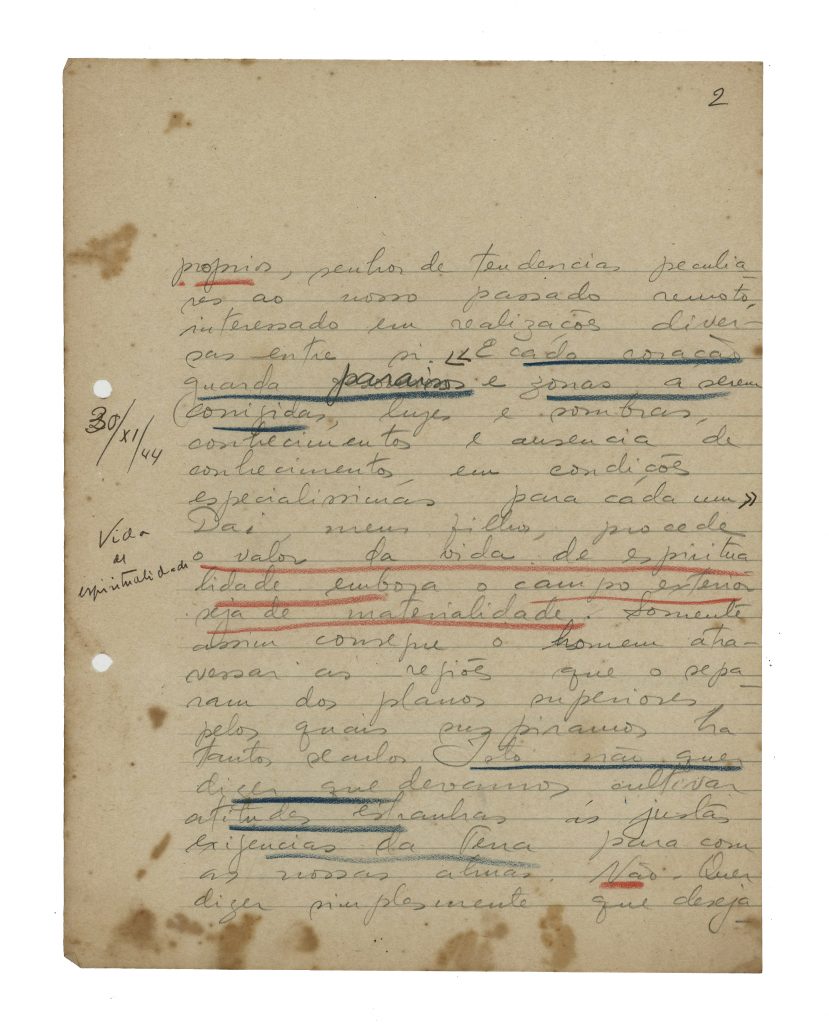 2
proprios, senhor de tendencias peculia
res ao nosso passado remoto,
interessado em realizações diver-
sas entre si. «E cada coração
guarda paraisos e zonas a serem
corrigidas, luzes e sombras,
conhecimentos e ausencia de
conhecimentos, em condições
especialissimas para cada um»
Dai, meu filho, procede
o valor da vida de espiritua
lidade embora o campo exterior
seja de materialidade. Somente
assim consegue o homem atra-
vessar as regiões que o sepa-
ram dos planos superiores,
pelos quais suspiramos ha
tantos seculos. Isto não quer
dizer que devamos cultivar
atitudes estranhas ás justas
exigencias da Terra para com
as nossas almas. Não. Quer
dizer simplesmente que deseja
30/XI/44
Vida
de
espiritualidade